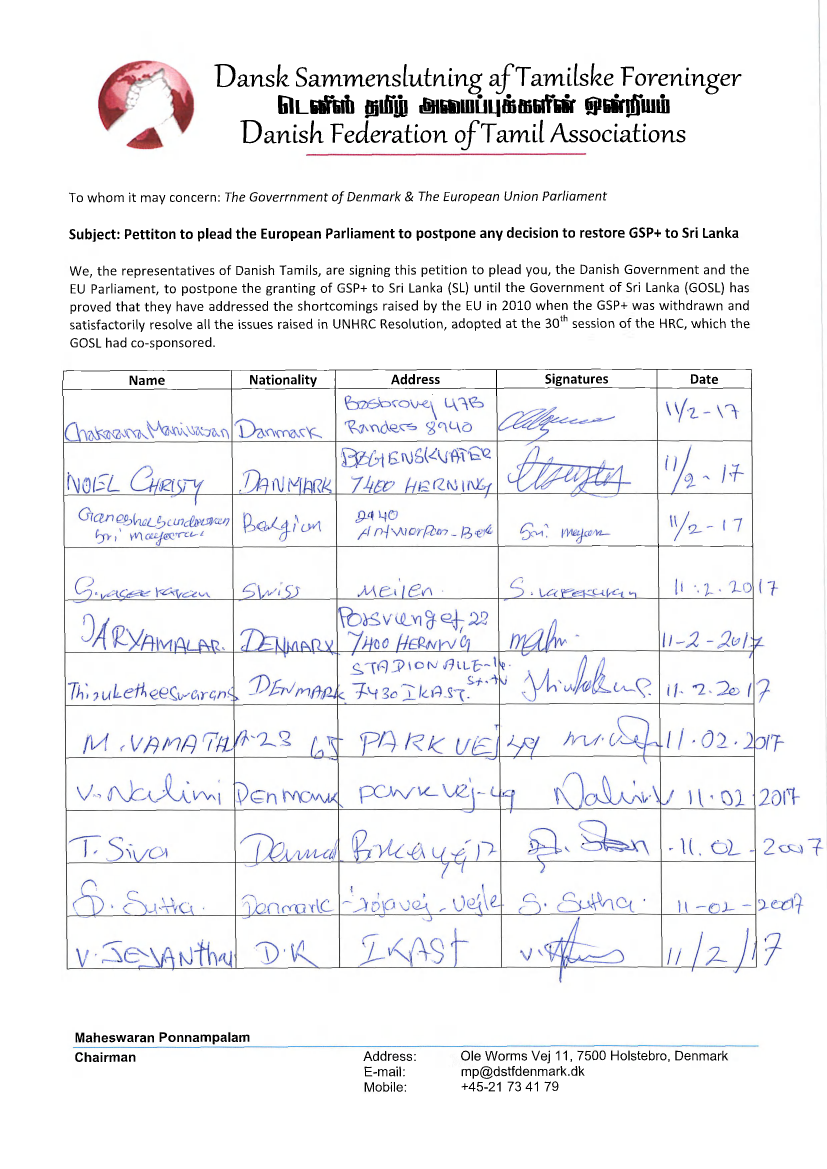 Dansk Sammenslutning af Tamilske Foreninger
டெனிஸ் தமிழ் அமைப்புக்களின் ஒன்றியம்
Danish Federation of Tamil Associations
To whom it may concern: The Goverrnment of Denmark & The European Union Parliament
Subject: Pettiton to plead the European Parliament to postpone any decision to restore GSP+ to Sri Lanka
We, the representatives of Danish Tamils, are signing this petition to plead you, the Danish Government and the
EU Parliament, to postpone the granting of GSP+ to Sri Lanka (SL) until the Government of Sri Lanka (GOSL) has
proved that they have addressed the shortcomings raised by the EU in 2010 when the GSP+ was withdrawn and
satisfactorily resolve all the issues raised in UNHRC Resolution, adopted at the 30th session of the HRC, which the
GOSL had co-sponsored.
Name Nationality Address Signatures Date
Bøsbrovej 47B
Manivasan Danmark Randers 8940 11/2-17
NOEL CHRISTY DANMARK 7400 HERNING 11/2-17
Belgium 2940 11/2-17
Swiss Meilen 11.2.2017
DENMARK 7400 HERNING 11-2-2017
STADION ALLE
Thirukketheeswarans DENMARK 7430 IKAST. 11.2.2017
M.VAMATHA PARKVEJ 49 11.02.2017
V. Nalini Denmark Parkvej-49 Nalini.V 11.02 2017
T. Siva 11.02-2007
S. Sutha. Denmark Vejle S. Sutha. 11-02-2007
V. D.K IKAST 11/2/17
Maheswaran Ponnampalam
Chairman
Address: Ole Worms Vej 11, 7500 Holstebro, Denmark
E-mail: mp@dstfdenmark.dk
Mobile: +45-21 73 41 79